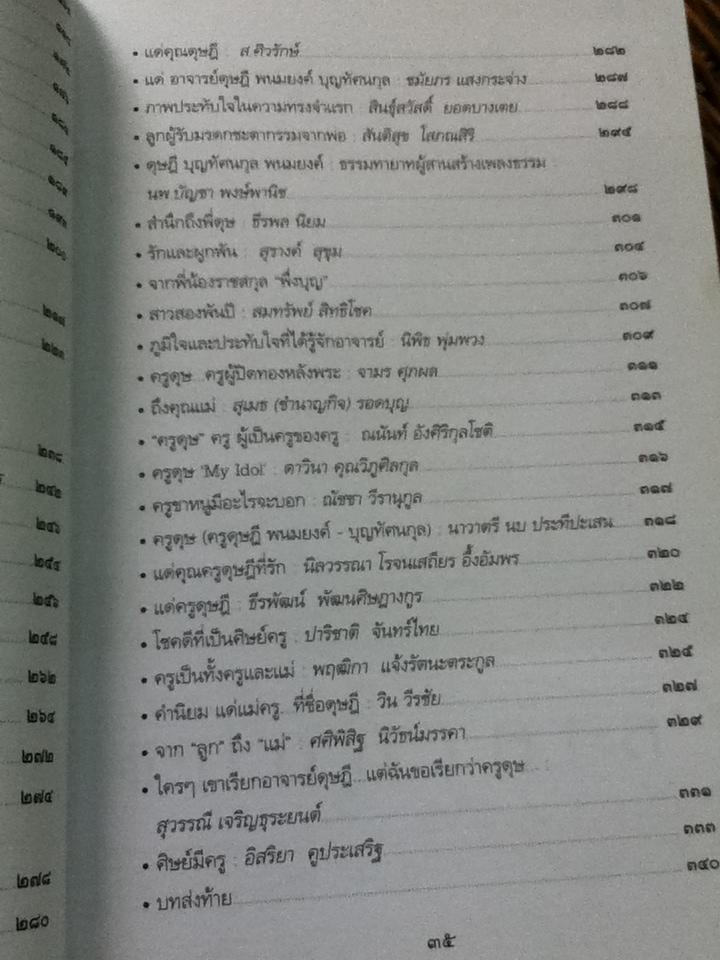 ๒๓๘
๒๔๒
๒๔๖
๒๕๔
๒๕๖
๒๕๘
๒๖๒
๒๖๔
๒๗๒
๒๗๔
๒๗๘
๒๘๐
• แด่คุณดุษฎี : ส.ศิวรักษ์ ๒๘๒
• แด่ อาจารย์ดุษฎี พนมยงค์ บุญทัศนกุล : ชมัยภร แสงกระจ่าง ๒๘๗
• ภาพประทับใจในความทรงจำแรก : สินธุ์สวัสดิ์ ยอดบางเตย ๒๘๘
• ลูกผู้รับมรดกชะตากรรมจากพ่อ : สันติสุข โสภณสิริ ๒๙๕
• ดุษฎี บุญทัศนกุล พนมยงค์ : ธรรมทายาทผู้สานสร้างเพลงธรรม
นพ.บัญชา พงษ์พานิช ๒๙๘
• สำนึกถึงพี่ดุษ : ธีรพล นิยม ๓๐๑
• รักและผูกพัน : สุรางค์ สุขุม ๓๐๔
• จากพี่น้องราชสกุล "พึ่งบุญ" ๓๐๖
• สาวสองพันปี : สมทรัพย์ สิทธิโชค ๓๐๗
• ภูมิใจและประทับใจที่ได้รู้จักอาจารย์ : นิพิช พุ่มพวง ๓๐๙
• ครูดุษ ครูผู้ปิดทองหลังพระ : จามร ศุภผล ๓๑๑
• ถึงคุณแม่ : สุเมธ (ชำนาญกิจ) รอดบุญ ๓๑๓
• "ครูดุษ" ครู ผู้เป็นครูของครู : ณนันท์ อังศิริกุลโชติ ๓๑๕
• ครูดุษ 'My Idol' : ดาวินา คุณวิภูศิลกุล ๓๑๖
• ครูขาหนูมีอะไรจะบอก : ณัชชา วีรานุกูล ๓๑๗
• ครูดุษ (ครูดุษฎี พนมยงค์ - บุญทัศนกุล) : นาวาตรี นบ ประทีปะเสน ๓๑๘
• แด่คุณครูดุษฎีที่รัก : นิลวรรณา โรจนเสถียร อึ้งอัมพร ๓๒๐
• แด่ครูดุษฎี : ธีรพัฒน์ พัฒนศิษฏางกูร ๓๒๒
• โชคดีที่เป็นศิษย์ครู : ปาริชาติ จันทร์ไทย ๓๒๔
• ครูเป็นทั้งครูและแม่ : พฤฒิกา แจ้งรัตนะตระกูล ๓๒๕
• คำนิยม แด่แม่ครู ที่ชื่อดุษฎี : วิน วีรชัย ๓๒๗
• จาก "ลูก" ถึง "แม่" : ศศิพิสิฐ นิวัธน์มรรคา ๓๒๙
• ใครๆ เขาเรียกอาจารย์ดุษฎี แต่ฉันขอเรียกว่าครูดุษ :
สุวรรณี เจริญธุระยนต์ ๓๓๑
• ศิษย์มีครู : อิสริยา คูประเสริฐ ๓๓๓
• บทส่งท้าย ๓๔๐
๓๕